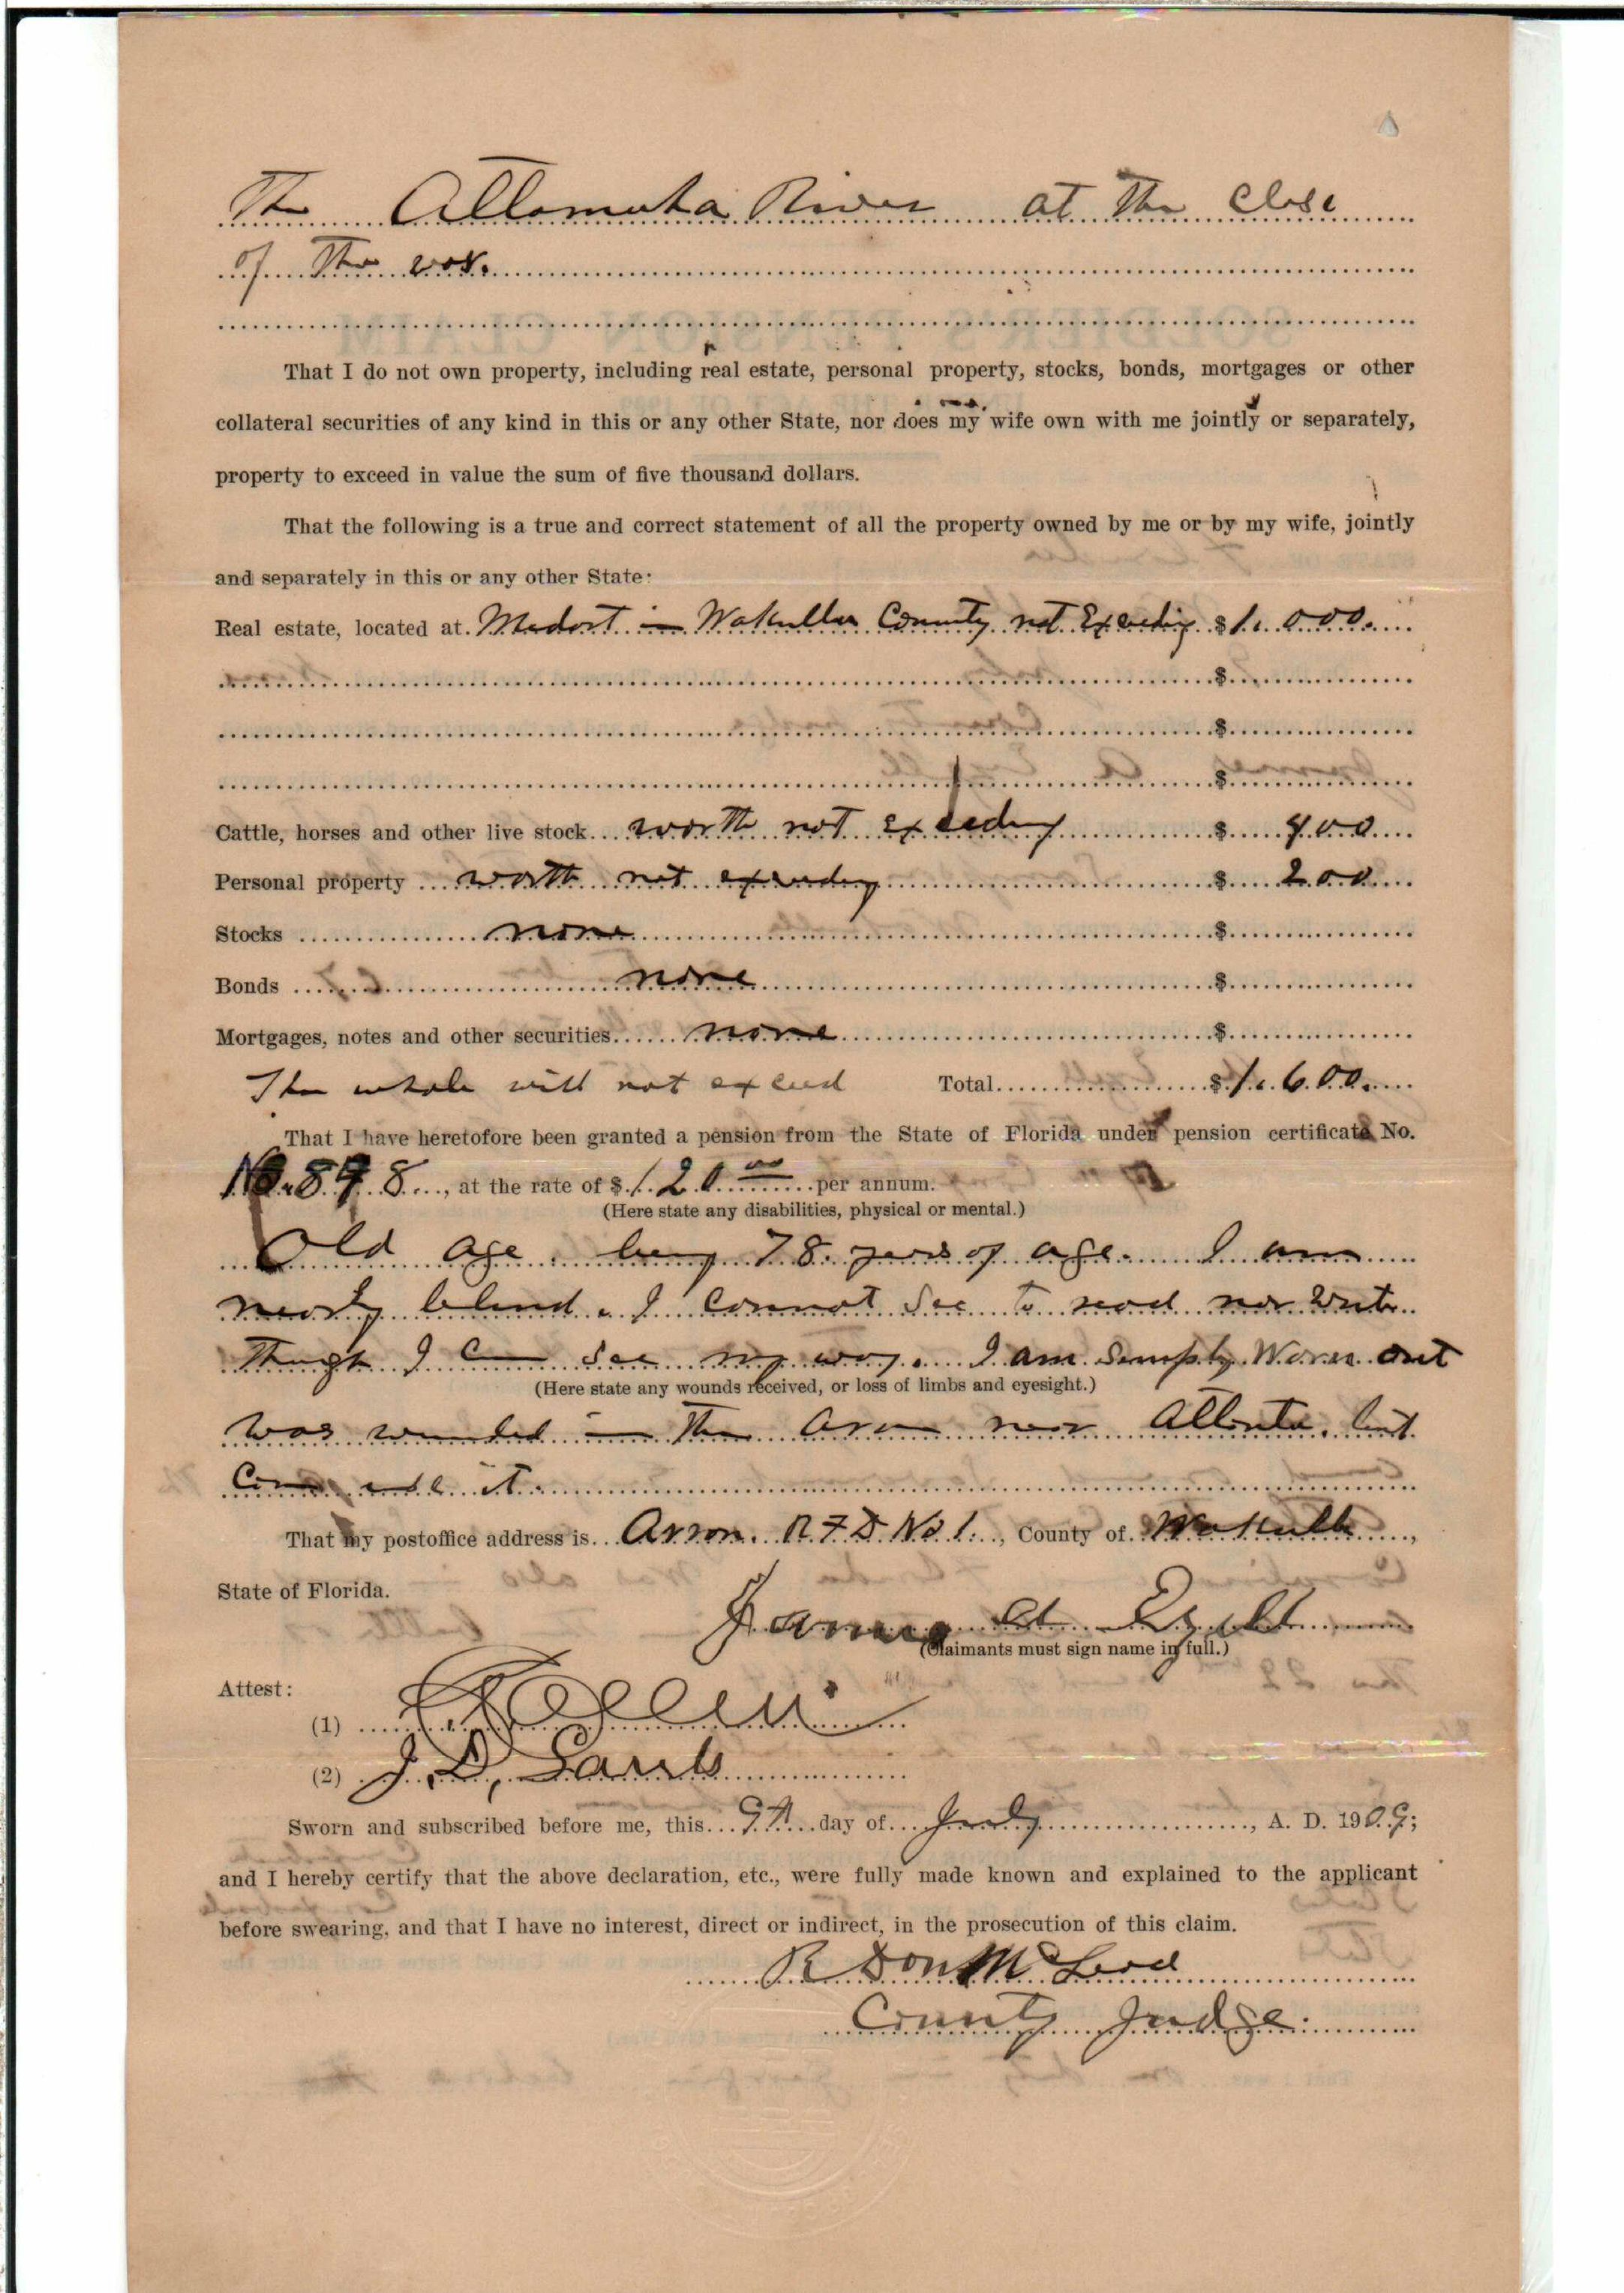 The Allamuha River at the close
of the war.
That I do not own property, including real estate, personal property, stocks, bonds, mortgages or other
collateral securities of any kind in this or any other State, nor does my wife own with me jointly or separately,
property to exceed in value the sum of five thousand dollars.
That the following is a true and correct statement of all the property owned by me or by my wife, jointly
and separately in this or any other State:
Real estate, located at Medart in Wakulla County not Exceeding $1.000.
$
$
$
Cattle, horses and other live stock worth not exceeding $400
Personal property worth not exceeding $200
Stocks none $
Bonds none $
Mortgages, notes and other securities none $
The whole will not exceed Total $1.600.
That I have heretofore been granted a pension from the State of Florida under pension certificate No.
No. 898, at the rate of $120 00 per annum.
(Here state any disabilities, physical or mental.)
Old age. being 78 years of age. I am
nearly blind. I cannot see to read nor write
though I can see my way. I am simply Worn out
(Here state any wounds received, or loss of limbs and eyesight.)
was wounded in the arm near Atlanta. but
can use it.
That my postoffice address is Arron. R F D No 1., County of Wakulla,
State of Florida.
James A Ezell
(Claimants must sign name in full.)
Attest:
(1)
(2) J. D,
Sworn and subscribed before me, this 9th day of July, A. D. 1909;
and I hereby certify that the above declaration, etc., were fully made known and explained to the applicant
before swearing, and that I have no interest, direct or indirect, in the prosecution of this claim.
R Don McLeod
County Judge.